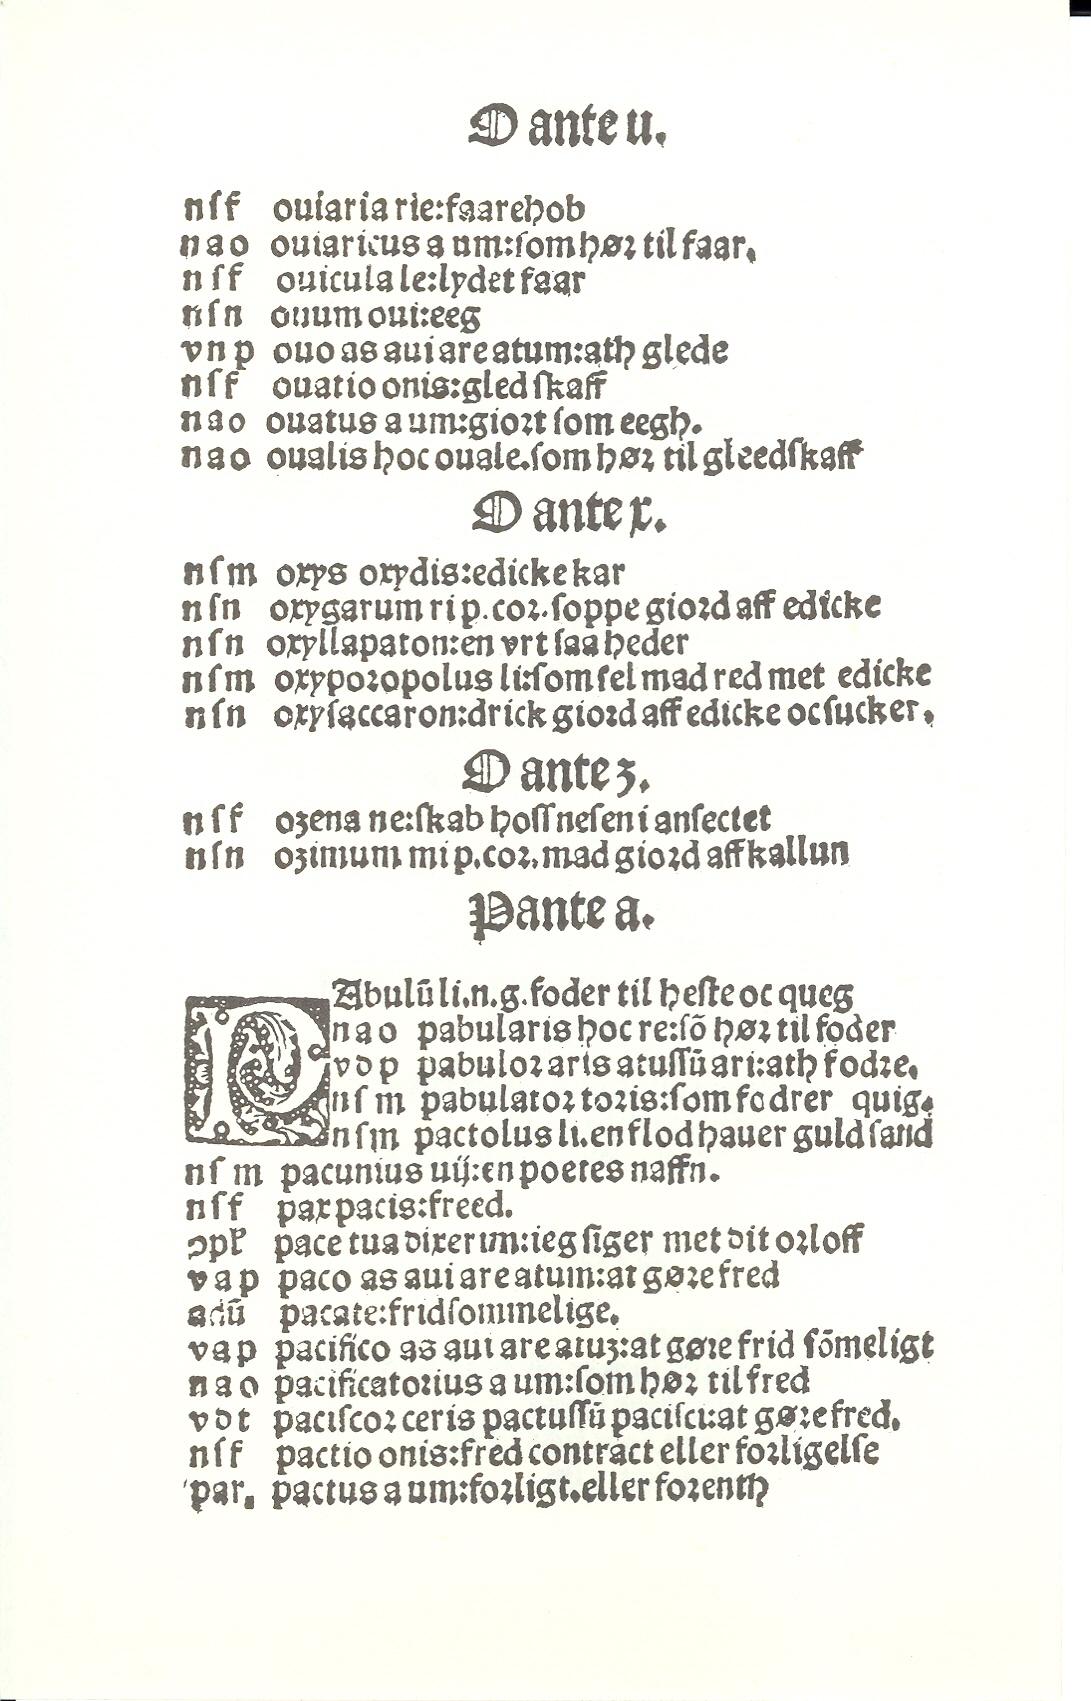 O ante u.
nſf ouiaria rie:faarehob
nao ouiaricus a um:ſom høꝛ til faar.
nſf ouicula le:lydet faar
nſn ouum oui:eeg
vnp ouo as aui are atum:ath glede
nſf ouatio onis:gledſkaff
nao ouatus a um:gioꝛt ſom eegh.
nao oualis hoc ouale.ſom høꝛ til gleedſkaff
O ante x.
nſm oxys oxydis:edicke kar
nſn oxygarum ri p.coꝛ.ſoppe gioꝛd aff edicke
nſn oxyllapaton:en vrt ſaa heder
nſm oxypoꝛopolus li:ſom ſel mad red met edicke
nſn oxyſaccaron:drick gioꝛd aff edicke oc ſucker.
O ante z.
nſf ozena ne:ſkab hoſſ neſen i anſectet
nſn ozimum mi p.coꝛ.mad gioꝛd aff kallun
P ante a.
PAbulū li.n.g.foder til heſte oc queg
nao pabularis hoc re:ſō høꝛ til foder
vdp pabuloꝛ aris atuſſū ari:ath fodꝛe.
nſm pabulatoꝛ toꝛis:ſom fodrer quig.
nſm pactolus li.en flod hauer guld ſand
nſm pacunius uij:en poetes naffn.
nſf pax pacis:freed.
ↄpꝉ pace tua dixerim:ieg ſiger met dit oꝛloff
vap paco as aui are atum:at gøꝛe fred
adū pacate:fridſommelige.
vap pacifico as aui are atuꝫ:at gøꝛe frid ſōmeligt
nao pacificatoꝛius a um:ſom høꝛ til fred
vdt paciſcoꝛ ceris pactuſſū paciſci:at gøꝛe fred.
nſf pactio onis:fred contract eller foꝛligelſe
par. pactus a um:foꝛligt.eller foꝛenth